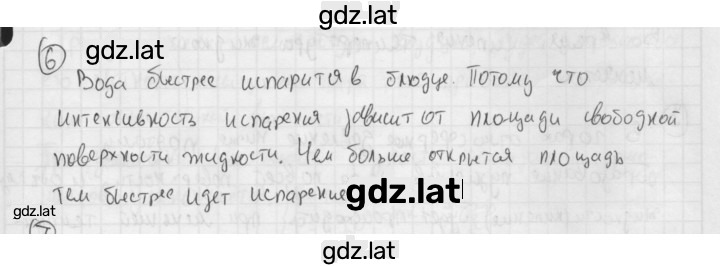 gdz.lat
6
gdz.lat
Вода быстрее испарится в блюдце. Потому что
интенсивность испарения зависит от площади свободной
поверхности жидкости. Чем больше открытся площадь
тем быстрее идет испарение
gdz.lat
gdz.lat
7
gdz.lat